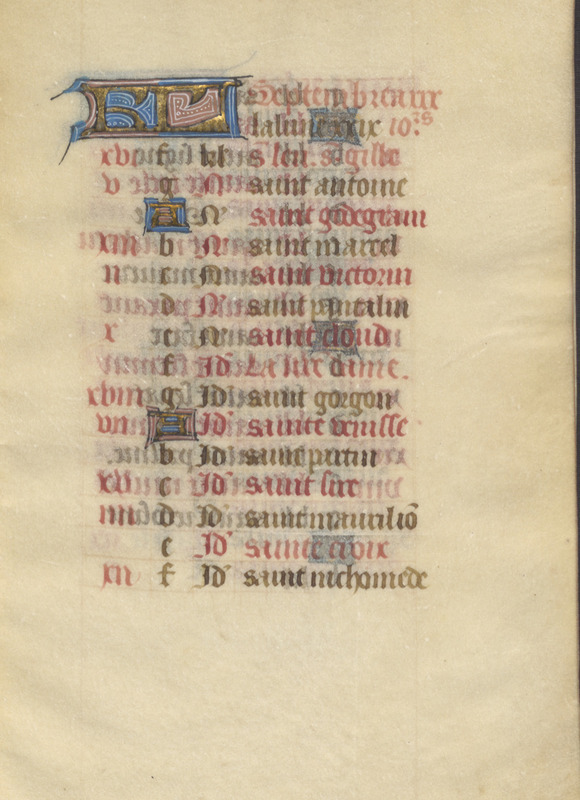 KL Septembre a xxx
la lune xxix iors
xvi f kl s leu. s. gille
v g N saint antoine
A N saint godegran
xiii b N saint marcel
ii c N saint victorin
d N saint
x e N saint cloud
f Id La nre dame.
xviii g Id saint gorgon
vii A Id sainte
b Id saint
xv c Id saint sire
iiii d Id saint maurilio
e Id sainte croix
xii f Id saint nichomede